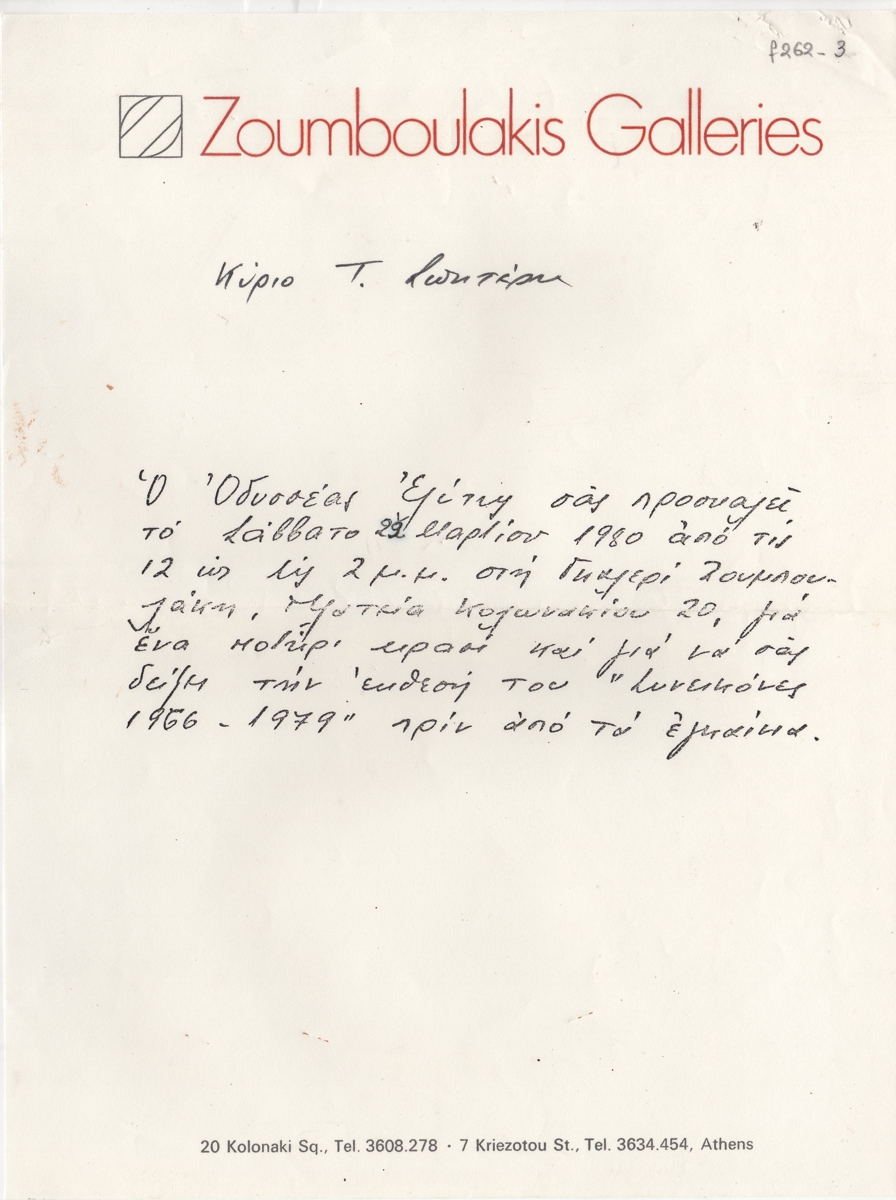 f262-3
Zoumboulakis Galleries
Κύριο Τ. Σπητέρη
Ὁ Ὀδυσσέας Ἐλύτης σᾶς προσκαλεῖ
τό Σάββατο 29 Μαρτίου 1980 ἀπό τίς
12 ὡς τίς 2 μ.μ. στή Γκαλερί Ζουμπου-
λάκη, Πλατεία Κολωνακίου 20, γιά
ἕνα ποτήρι κρασί καί γιά νά σᾶς
δείξη τήν ἔκθεσή του "Συνεικόνες
1966 - 1979" πρίν ἀπό τά ἐγκαίνια.
20 Kolonaki Sq., Tel. 3608.278 · 7 Kriezotou St., Tel. 3634.454, Athens